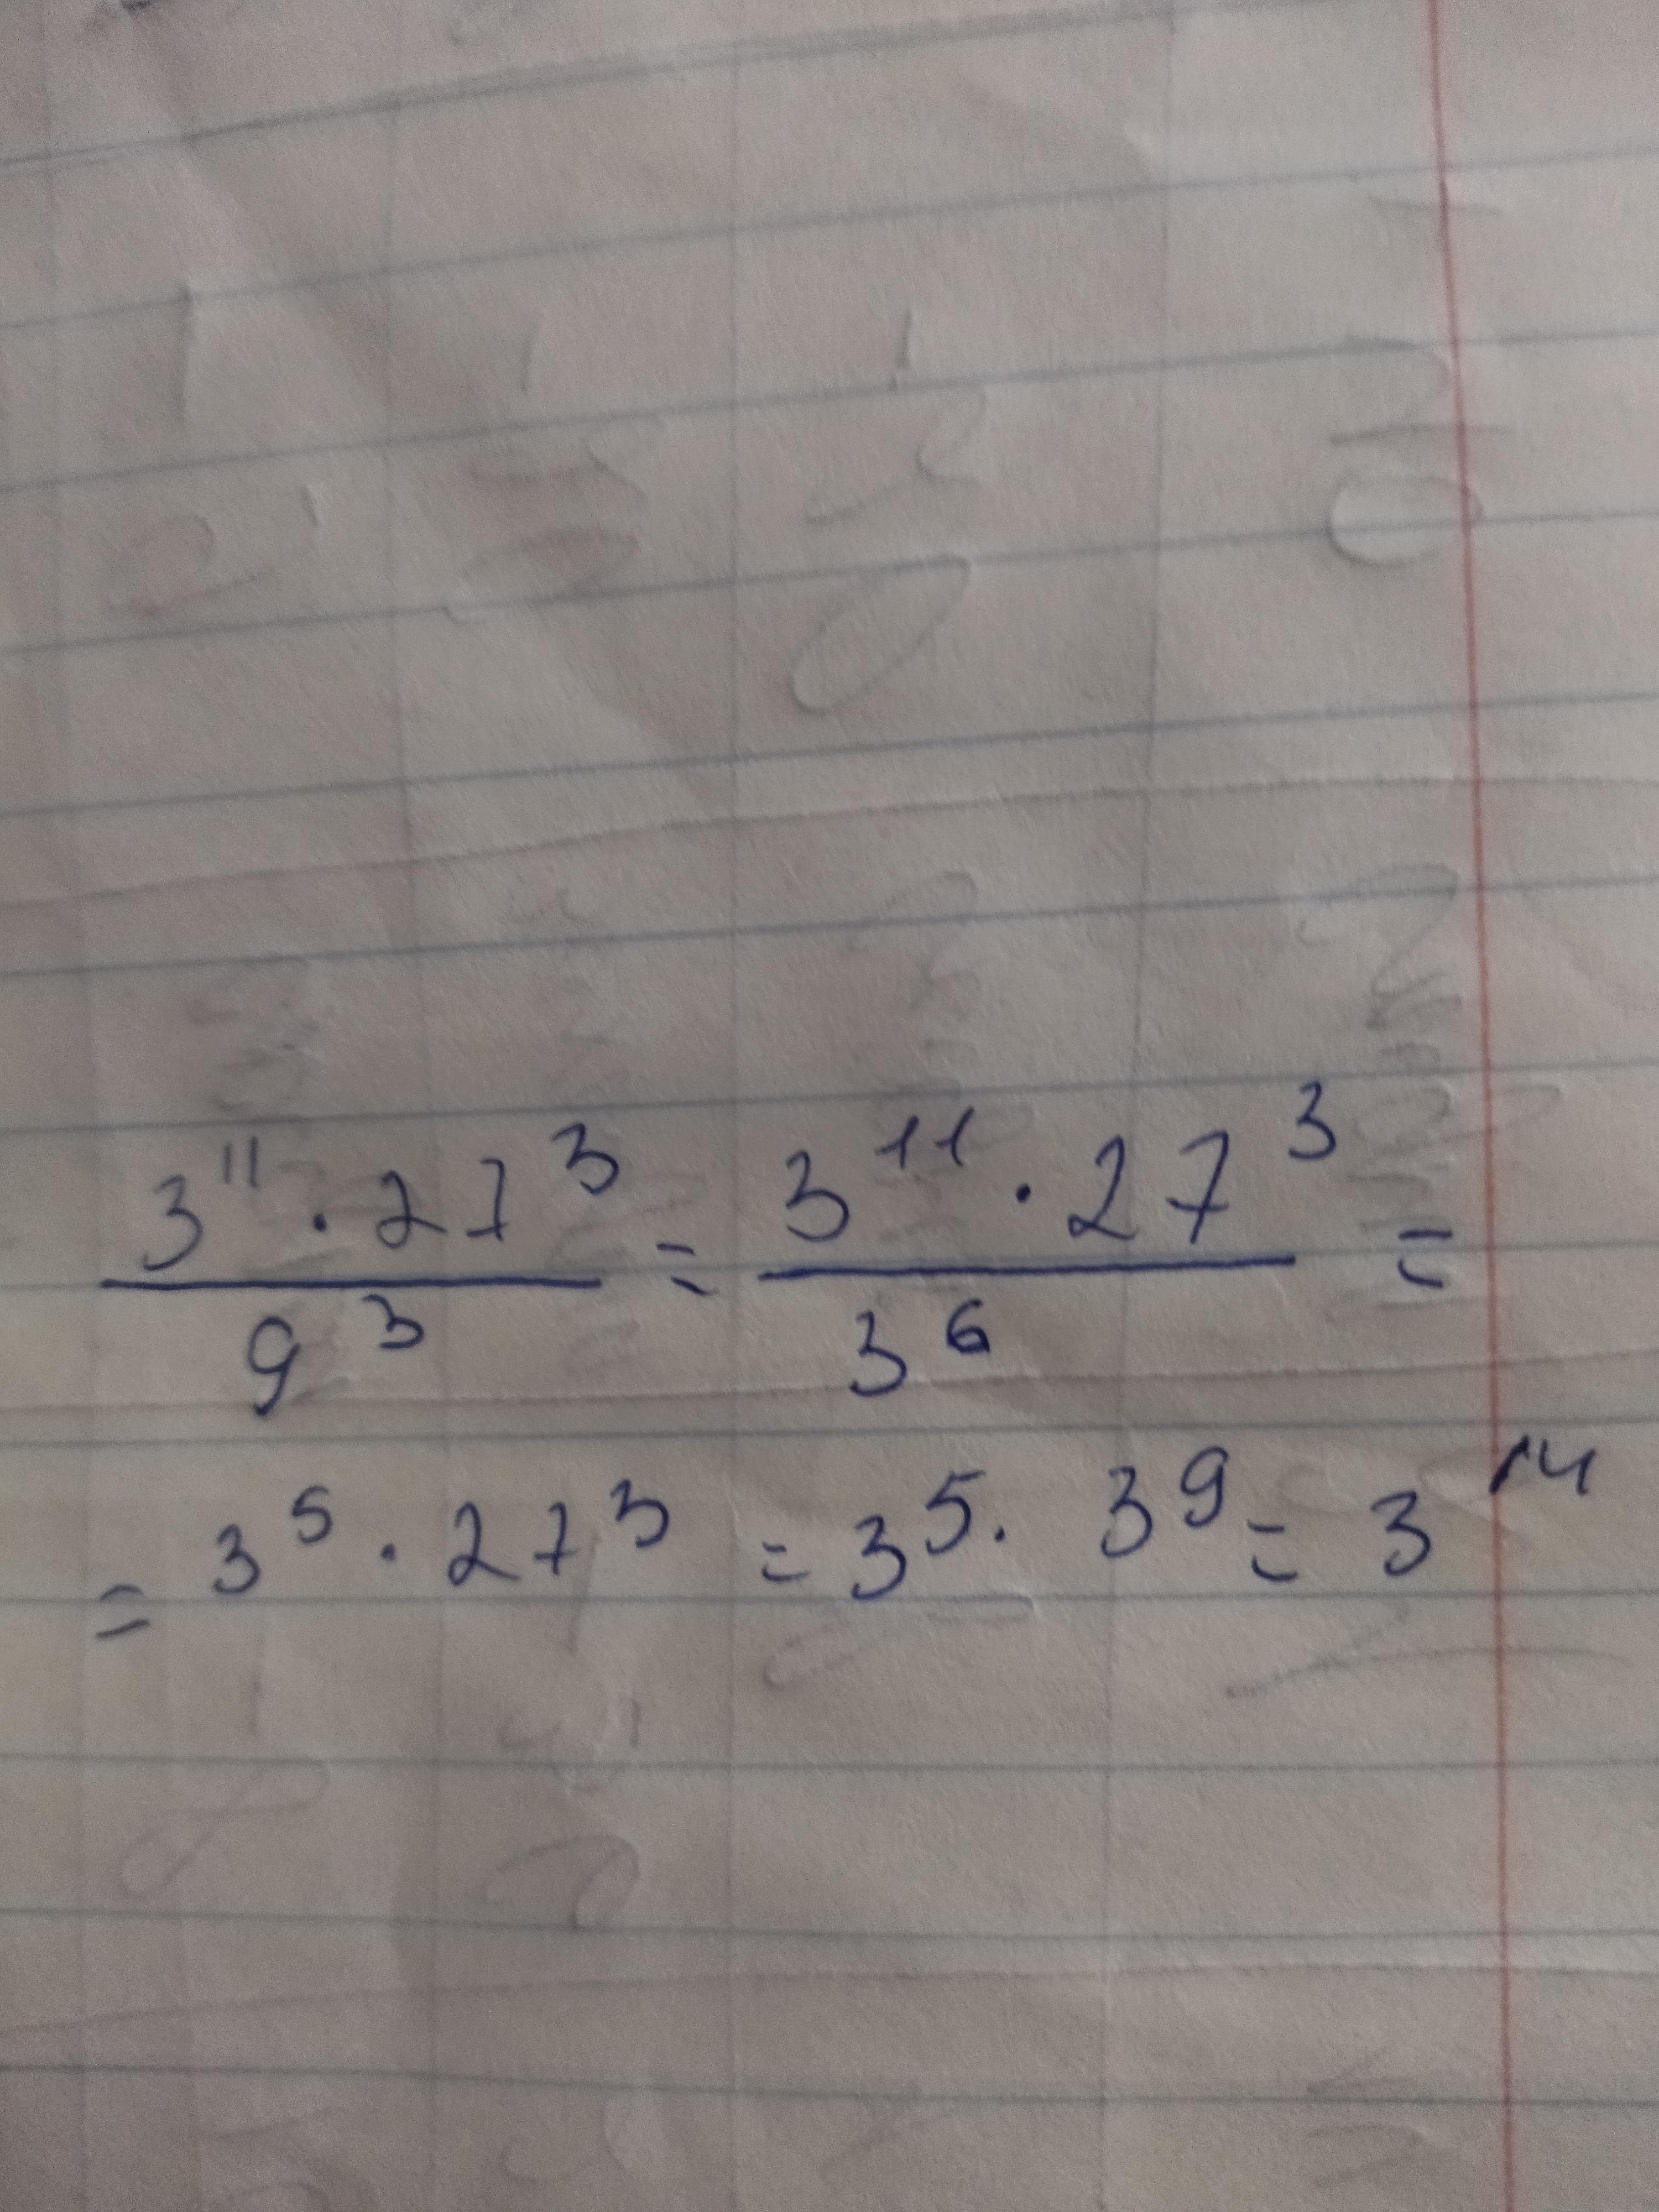 3¹¹ · 27³ / 9³ = 3¹¹ · 27³ / 3⁶ =
= 3⁵ · 27³ = 3⁵ · 3⁹ = 3¹⁴